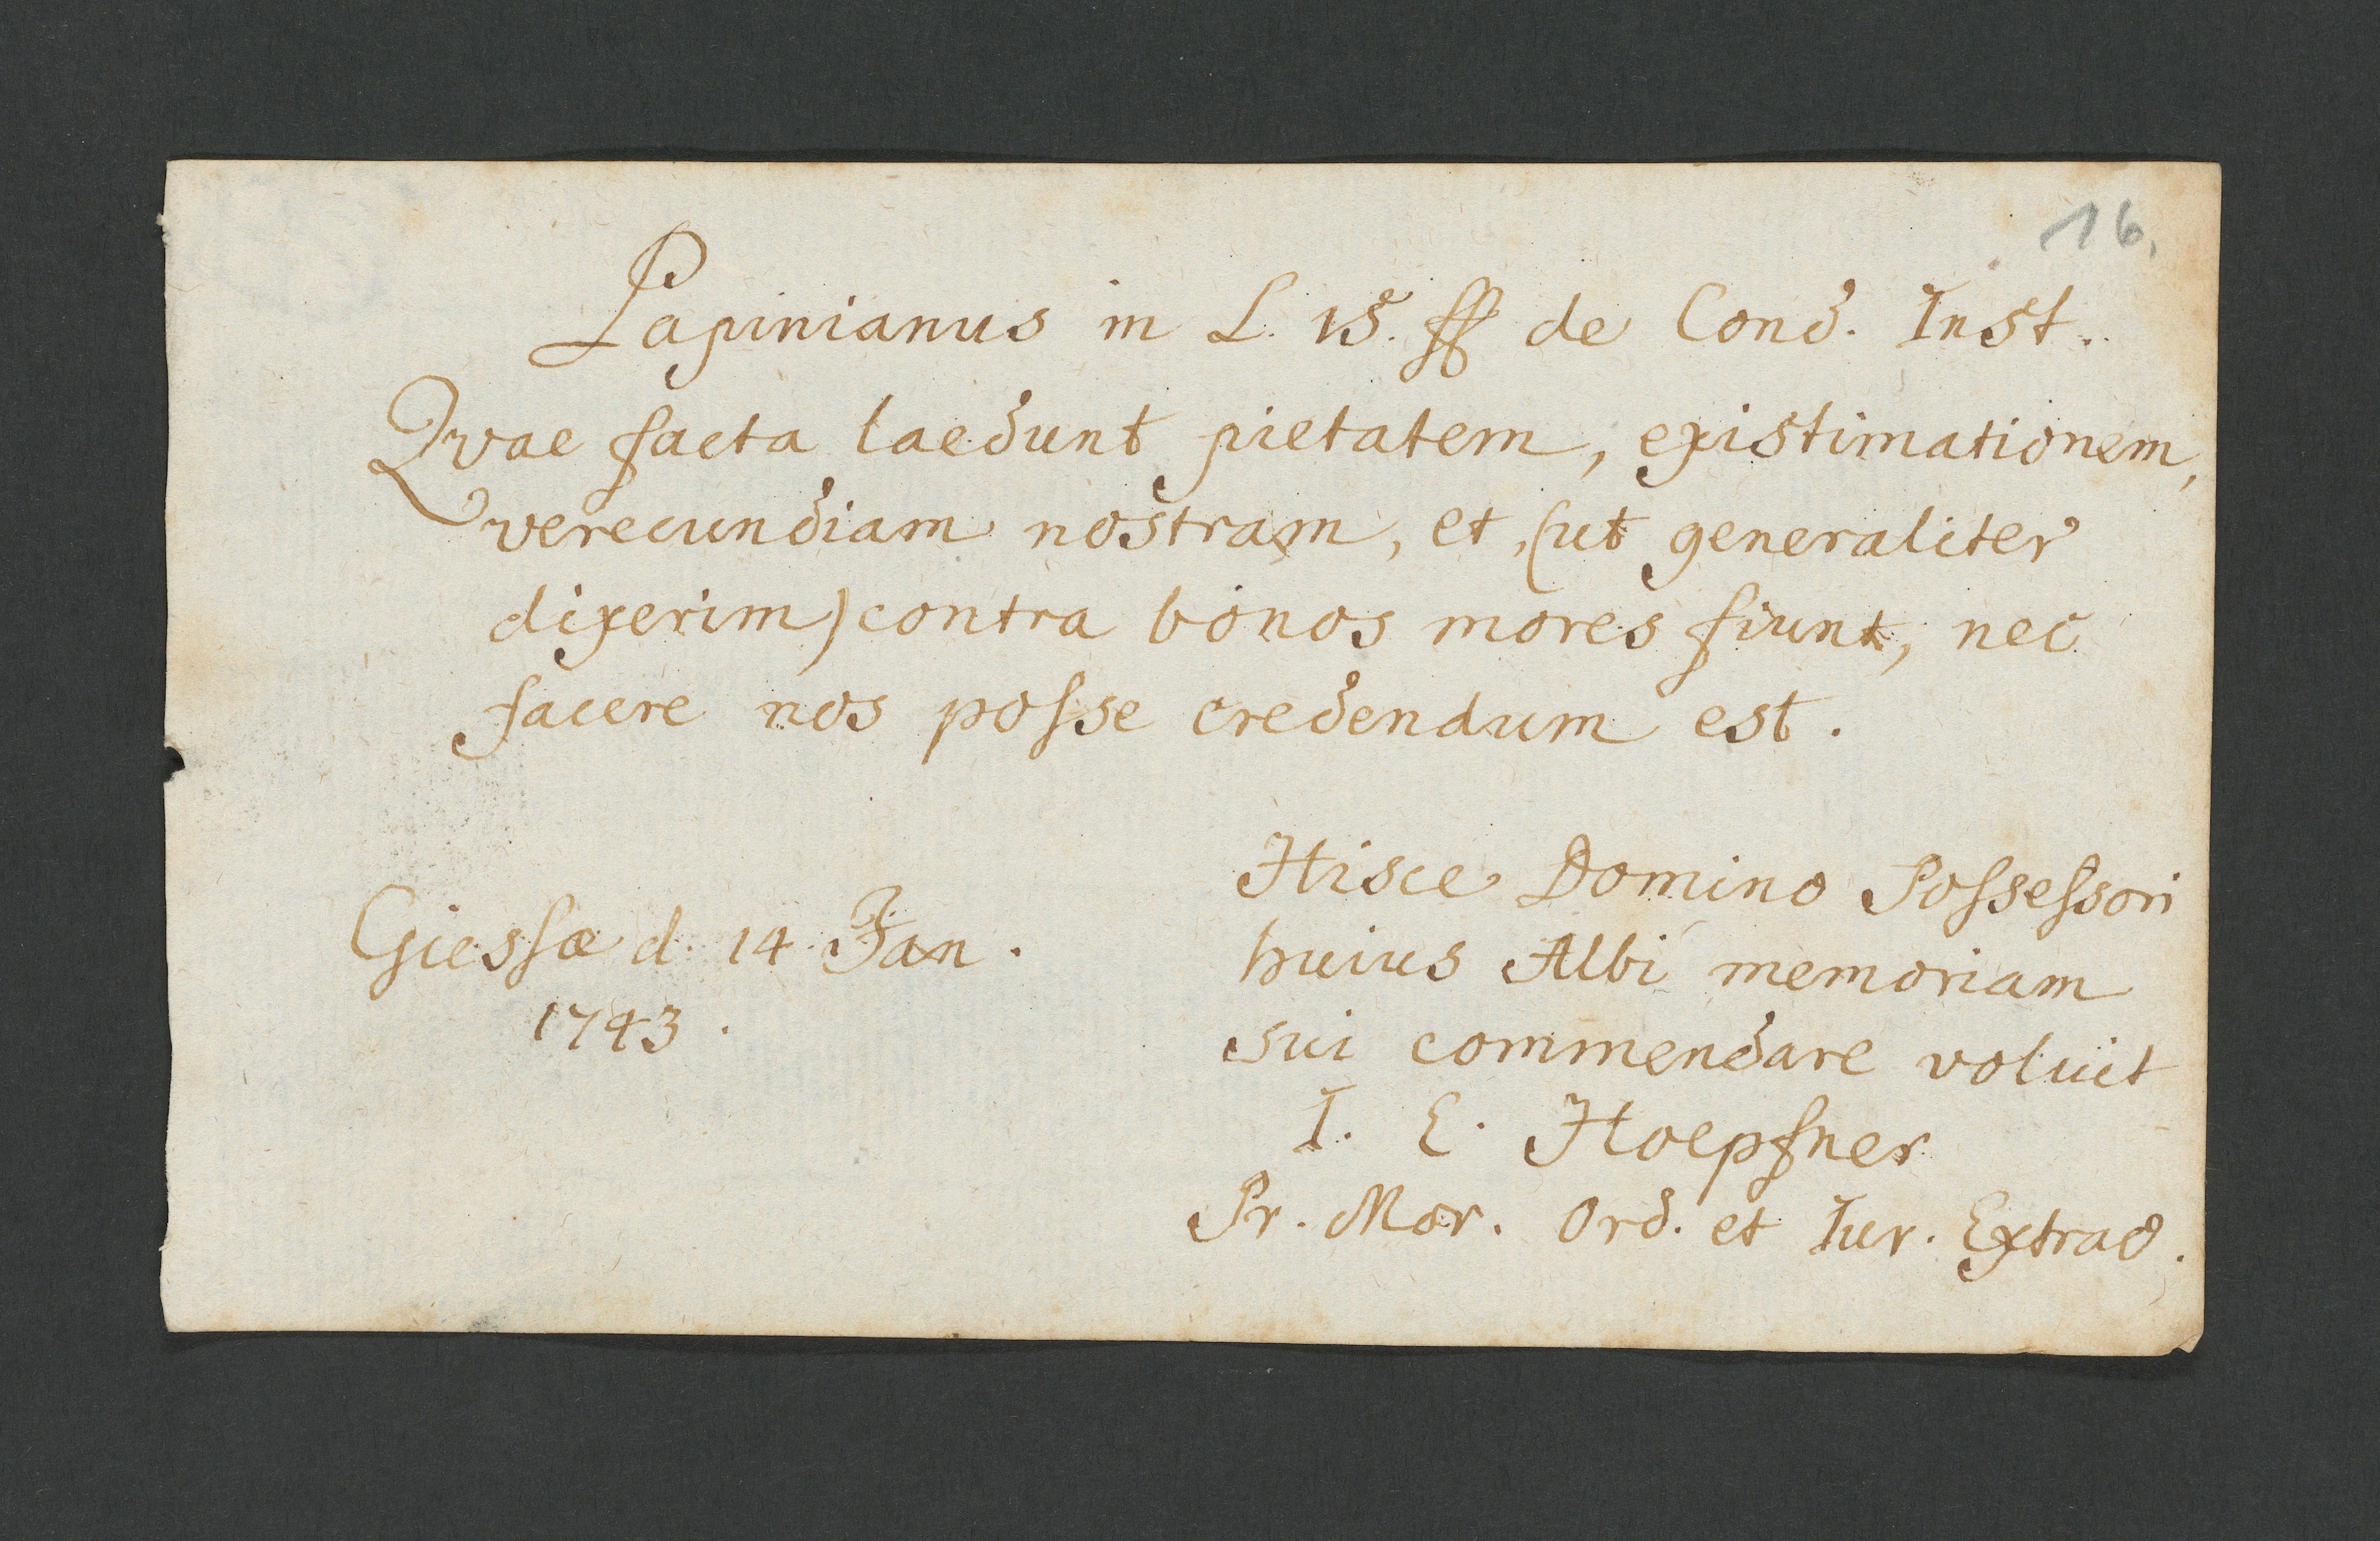 16.
Papinianus in L. 15. ff de Cond. Inst.
Qvae facta laedunt pietatem, existimationem,
verecundiam nostram, et, (ut generaliter
dixerim) contra bonos mores fiunt, nec
facere nos posse credendum est.
Giessæ d. 14. Jan.
1743.
Hisce Domino Possessori
huius Albi memoriam
sui commendare voluit
I. E. Hoepfner
Pr. Mor. Ord. et Iur. Extrao.